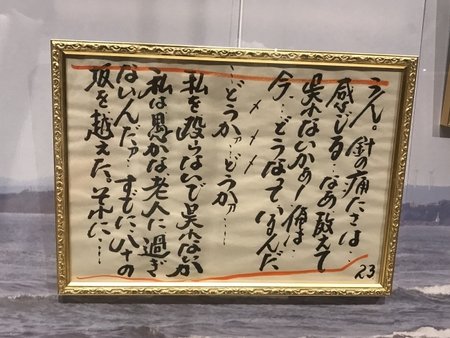 うん。針の痛たさは…
感じる…なぁ教えて
呉れないかぁー俺は…
今…どうなってゐるんだ
メ メ メ
…どうかァ…どうかァ……
私を殴らないで呉れないか
私は愚かな老人に過ぎ
ないんだァ…すでに八十の
坂を越えた。…
23